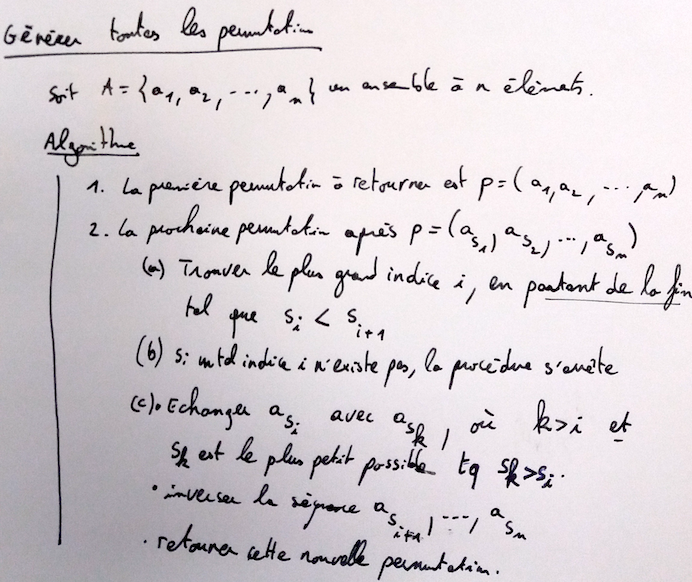 Générer toutes les permutation
Soit A = {a₁, a₂, ---, aₙ} un ensemble à n éléments.
Algorithme
1. La première permutation à retourner est p = (a₁, a₂, ---, aₙ)
2. La prochaine permutation après p = (a_{s₁}, a_{s₂}, ..., a_{sₙ})
(a) Trouver le plus grand indice i, en partant de la fin
tel que s_i < s_{i+1}
(b) Si un tel indice i n'existe pas, la procédure s'arrête
(c) • Echanger a_{s_i} avec a_{s_k}, où k>i et
s_k est le plus petit possible tq s_k > s_i.
• inverser la séquence a_{s_{i+1}}, ---, a_{sₙ}
• retourner cette nouvelle permutation.